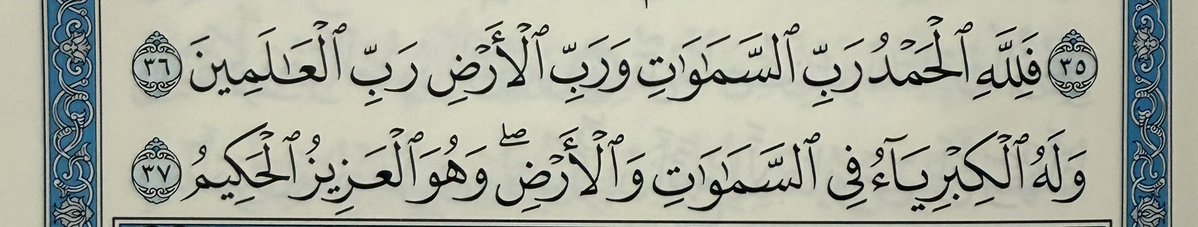 ٣٥ فَلِلَّهِ ٱلْحَمْدُ رَبِّ ٱلسَّمَٰوَٰتِ وَرَبِّ ٱلْأَرْضِ رَبِّ ٱلْعَٰلَمِينَ ٣٦
وَلَهُ ٱلْكِبْرِيَآءُ فِى ٱلسَّمَٰوَٰتِ وَٱلْأَرْضِ ۖ وَهُوَ ٱلْعَزِيزُ ٱلْحَكِيمُ ٣٧